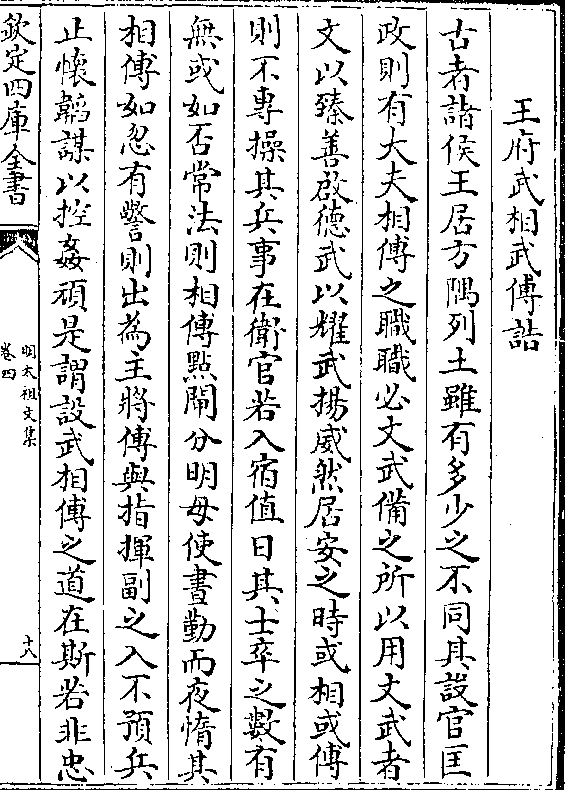 王府武相武傅誥
古者諸侯王居方隅列土雖有多少之不同其設官匡
政則有大夫相傅之職職必文武備之所以用文武者
文以臻善啟德武以耀武揚威然居安之時或相或傅
則不專操其兵事在衛官若入宿值日其士卒之數有
無或如否常法則相傅點閘分明毋使晝勤而夜惰其
相傅如忽有警則出為主將傅與指揮副之入不預兵
止懷韜謀以控姦頑是謂設武相傅之道在斯若非忠
欽定四庫全書
明太祖文集
卷四
十八